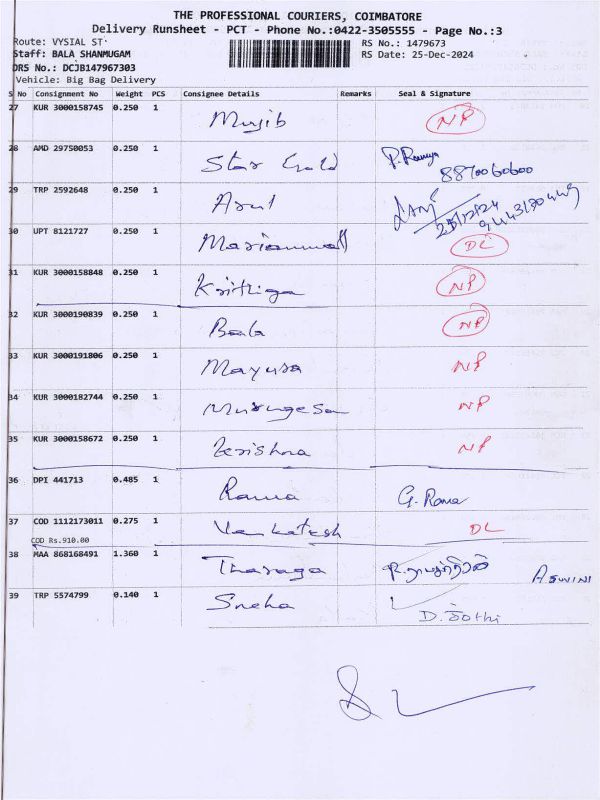 THE PROFESSIONAL COURIERS, COIMBATORE
Delivery Runsheet - PCT - Phone No.:0422-3505555 - Page No.:3
Route: VYSIAL ST
RS No.: 1479673
Staff: BALA SHANMUGAM
RS Date: 25-Dec-2024
DRS No.: DCJB147967303
Vehicle: Big Bag Delivery
S No Consignment No Weight PCS Consignee Details Remarks Seal & Signature
27 KUR 3000158745 0.250 1 Mujib NP
28 AMD 29750053 0.250 1 Star Gold P. Ramya
8870060600
29 TRP 2592648 0.250 1 Arul
25/12/24
30 UPT 8121727 0.250 1 Mariammall DL
31 KUR 3000158848 0.250 1 Krithiga NP
32 KUR 3000190839 0.250 1 Bala NP
33 KUR 3000191806 0.250 1 Mayusa NP
34 KUR 3000182744 0.250 1 Murugesan NP
35 KUR 3000158672 0.250 1 Krishna NP
36 DPI 441713 0.485 1 Rama G. Rama
37 COD 1112173011 0.275 1 Venkatesh DL
COD Rs.910.00
38 MAA 868168491 1.360 1 Tharaga ASWINI
39 TRP 5574799 0.140 1 Sneha
D. ஜோthi